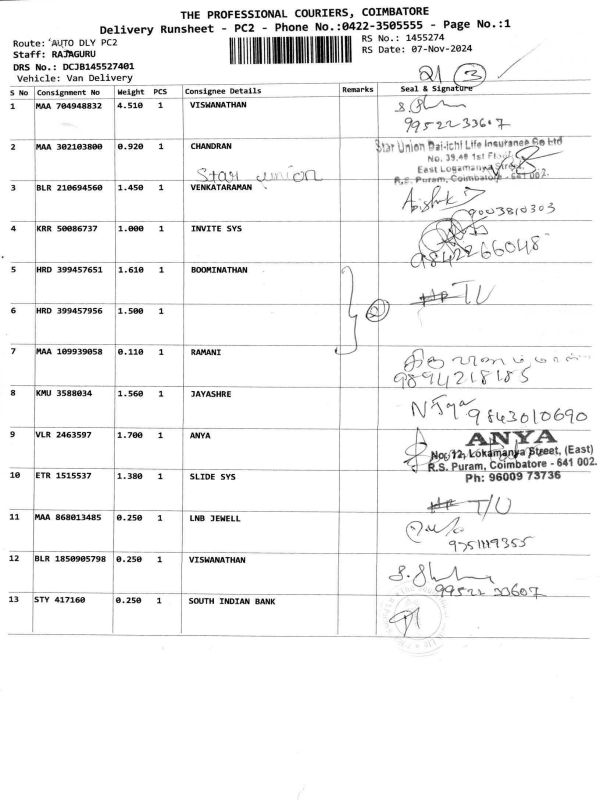 THE PROFESSIONAL COURIERS, COIMBATORE
Delivery Runsheet - PC2 - Phone No.:0422-3505555 - Page No.:1
Route: AUTO DLY PC2
RS No.: 1455274
Staff: RAJAGURU
RS Date: 07-Nov-2024
DRS No.: DCJB145527401
Vehicle: Van Delivery
21 3
S No Consignment No Weight PCS Consignee Details Remarks Seal & Signature
1 MAA 704948832 4.510 1 VISWANATHAN
9952233607
2 MAA 302103800 0.920 1 CHANDRAN
Star Union Dai-ichi Life Insurance Co Ltd
No. 39,40 1st Floor
East Logamanya Street,
R.S. Puram, Coimbatore - 641 002.
Star union
3 BLR 210694560 1.450 1 VENKATARAMAN
9003810303
4 KRR 50086737 1.000 1 INVITE SYS
9842266048
5 HRD 399457651 1.610 1 BOOMINATHAN
T/U
6 HRD 399457956 1.500 1
2
7 MAA 109939058 0.110 1 RAMANI
9894218185
8 KMU 3588034 1.560 1 JAYASHRE
9843010690
9 VLR 2463597 1.700 1 ANYA
ANYA
No: 12, Lokamanya Street, (East)
R.S. Puram, Coimbatore - 641 002.
Ph: 96009 73736
10 ETR 1515537 1.380 1 SLIDE SYS
T/U
11 MAA 868013485 0.250 1 LNB JEWELL
12 BLR 1850905798 0.250 1 VISWANATHAN
9952233607
13 STY 417160 0.250 1 SOUTH INDIAN BANK